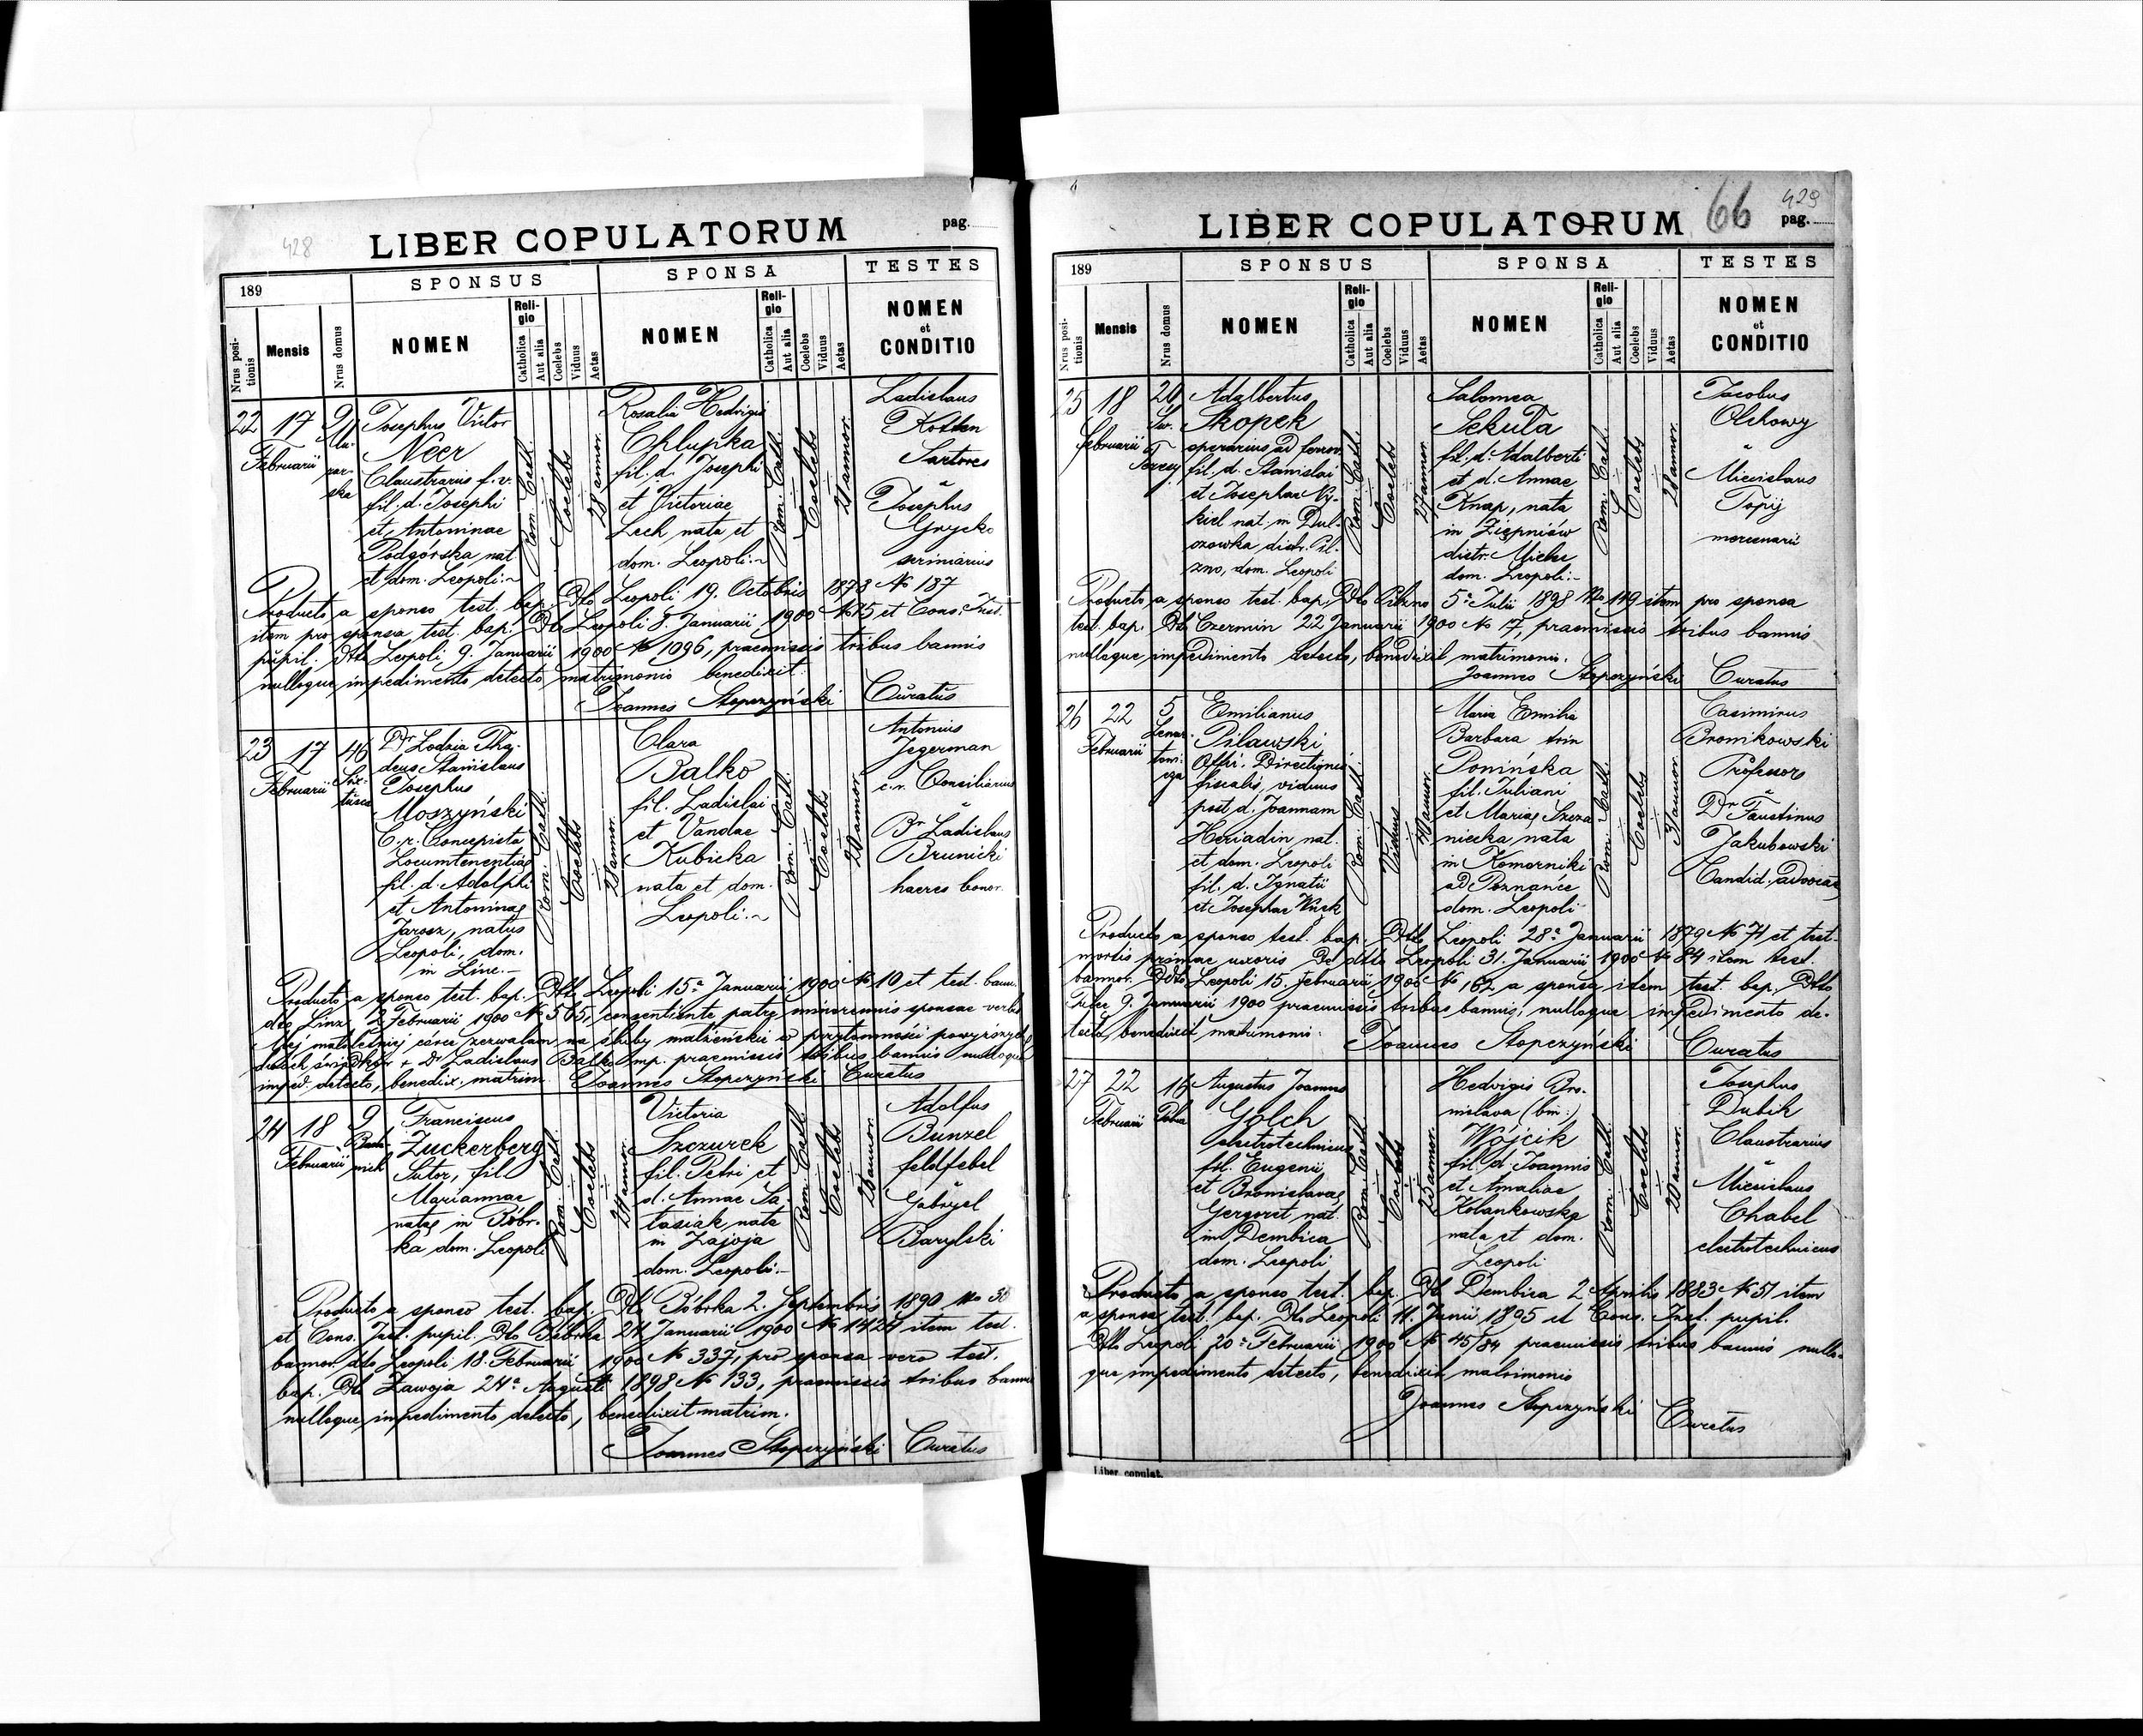 428
LIBER COPULATORUM
pag.
189
SPONSUS
SPONSA
TESTES
Nrus positionis
Mensis
Nrus domus
NOMEN
Religio
Catholica
Aut alia
Coelebs
Viduus
Aetas
NOMEN
Religio
Catholica
Aut alia
Coelebs
Viduus
Aetas
NOMEN
et
CONDITIO
22
17
Februarii
9
Josephus Victor
Neer
Claustrarius f. v.
fil. d. Josephi
et Antoninae
Podgórska nat
et dom. Leopoli
Rom. Cath.
Coelebs
28 annor.
Rosalia Hedvigis
Chlupka
fil. d. Josephi
et Victoriae
Lech nata et
dom. Leopoli
Rom. Cath.
Coelebs
21 annor.
Ladislaus
Sartores
Josephus
Gnycko
scriniarius
Producto a sponso test. bap. Dto Leopoli 19. Octobris 1873 № 137
item pro sponsa test. bap. Dto Leopoli 8. Januarii 1900 № 15 et Cons. Inst.
pupil. dto Leopoli 9. Januarii 1900 № 1096, praemissis tribus bannis
nulloque impedimento detecto matrimonio benedixit.
Joannes Stopczyński Curatus
23
17
Februarii
46
Dr Lodzia Tha-
deus Stanislaus
Josephus
Moszyński
C. r. Concepista
Locumtenentiae
fil. d. Adolphi
et Antoninae
Jarosz, natus
Leopoli, dom.
in Linc.
Rom. Cath.
Coelebs
28 annor.
Clara
Balko
fil. Ladislai
et Vandae
Kubicka
nata et dom.
Leopoli
Rom. Cath.
Coelebs
20 annor.
Antonius
Jegerman
c. r. Consiliarius
Br Ladislaus
Brunicki
haeres bonor.
Producto a sponso test. bap. Dto Leopoli 15a Januarii 1900 № 10 et test. bann.
dto Linz 2 Februarii 1900 № 565, consentiente patre minorennis sponsae verbis
Mej małoletniej córce zezwalam na śluby małżeńskie w przytomności powyższych
dwóch świadków + Dr Ladislaus Balko mp. praemissis tribus bannis nulloque
imped. detecto, benedix. matrim. Joannes Stopczyński Curatus
24
18
Februarii
9
Franciscus
Zuckerberg
Sutor, fil
Mariannae
natae in Bóbr-
ka dom. Leopoli
Rom. Cath.
Coelebs
24 annor.
Victoria
Szczurek
fil. Petri et
d. Annae Sa-
tasiak nata
in Zajoja
dom. Leopoli
Rom. Cath.
Coelebs
28 annor.
Adolfus
Bunzel
feldfebel
Gabryel
Barylski
Producto a sponso test. bap. Dto Bóbrka 2. Septembris 1890 No 58
et Cons. Inst. pupil. Dto Bóbrka 24 Januarii 1900 № 1424 item test.
bannor. dto Leopoli 18. Februarii 1900 № 337, pro sponsa vero test.
bap. Dto Zawoja 24a Augusti 1898 № 133, praemissis tribus bannis
nulloque impedimento detecto, benedixit matrim.
Joannes Stopczyński Curatus
LIBER COPULATORUM
66
429
pag.
189
SPONSUS
SPONSA
TESTES
Nrus positionis
Mensis
Nrus domus
NOMEN
Religio
Catholica
Aut alia
Coelebs
Viduus
Aetas
NOMEN
Religio
Catholica
Aut alia
Coelebs
Viduus
Aetas
NOMEN
et
CONDITIO
25
18
Februarii
20
Św.
Teresy
Adalbertus
Skopek
operarius ad ferrov.
fil. d. Stanislai
et Josephae Ny-
kiel nat. in Dul-
czowka distr. Pil-
zno, dom. Leopoli
Rom. Cath.
Coelebs
27 annor.
Salomea
Sekuła
fil. d. Adalberti
et d. Annae
Knap, nata
in Ziępniów
distr. Mielec
dom. Leopoli
Rom. Cath.
Coelebs
28 annor.
Jacobus
Olchowy
Miecislaus
Topij
mercenarii
Producto a sponso test. bap. Dto Pilzno 5a Julii 1898 No 149 item pro sponsa
test. bap. Dto Czermin 22 Januarii 1900 № 17, praemissis tribus bannis
nulloque impedimento detecto, benedixit matrimonio.
Joannes Stopczyński Curatus
26
22
Februarii
5
Lenar-
towi-
cza
Emilianus
Pilawski
Offic. Directionis
fiscalis, viduus
post d. Joannam
Heriadin nat.
et dom. Leopoli
fil. d. Ignatii
et Josephae Wnęk
Rom. Cath.
Viduus
Maria Emilia
Barbara trin
Ponińska
fil. Juliani
et Mariae Szcza
niecka nata
in Komorniki
ad Poznańce
dom. Leopoli
Rom. Cath.
Coelebs
31 annor.
Casimirus
Bronikowski
Professor
Dr Faustinus
Jakubowski
Candid. advocat.
Producto a sponso test. bap. Dto Leopoli 28a Januarii 1879 № 71 et test.
mortis primae uxoris De dtto Leopoli 31. Januarii 1900 № 84 item test.
bannor. Ddto Leopoli 15. Februarii 1900 № 162 a sponsa item test. bap. Ddto
9. Januarii 1900 praemissis tribus bannis, nulloque impedimento de-
tecto, benedixit matrimonio.
Joannes Stopczyński Curatus
27
22
Februarii
14
Augustus Joannes
Golch
electrotechnicus
fil. Eugenii
et Bronislavae
Gergoret nat.
in Dembica
dom. Leopoli
Rom. Cath.
Coelebs
Hedvigis Bro-
nislava (bin.)
Wójcik
fil. d. Joannis
et Amaliae
Kolankowska
nata et dom.
Leopoli
Rom. Cath.
Coelebs
20 annor.
Josephus
Dubik
Claustrarius
Miecislaus
Chabel
electrotechnicus
Producto a sponso test. bap. Dto Dembica 2 Aprilis 1883 № 51 item
a sponsa test. bap. Dto Leopoli 11. Junii 1895 et Cons. Inst. pupil.
Ddto Leopoli 20a Februarii 1900 № 45/84 praemissis tribus bannis nullo-
que impedimento detecto, benedixit matrimonio
Joannes Stopczyński Curatus
Liber copulat.